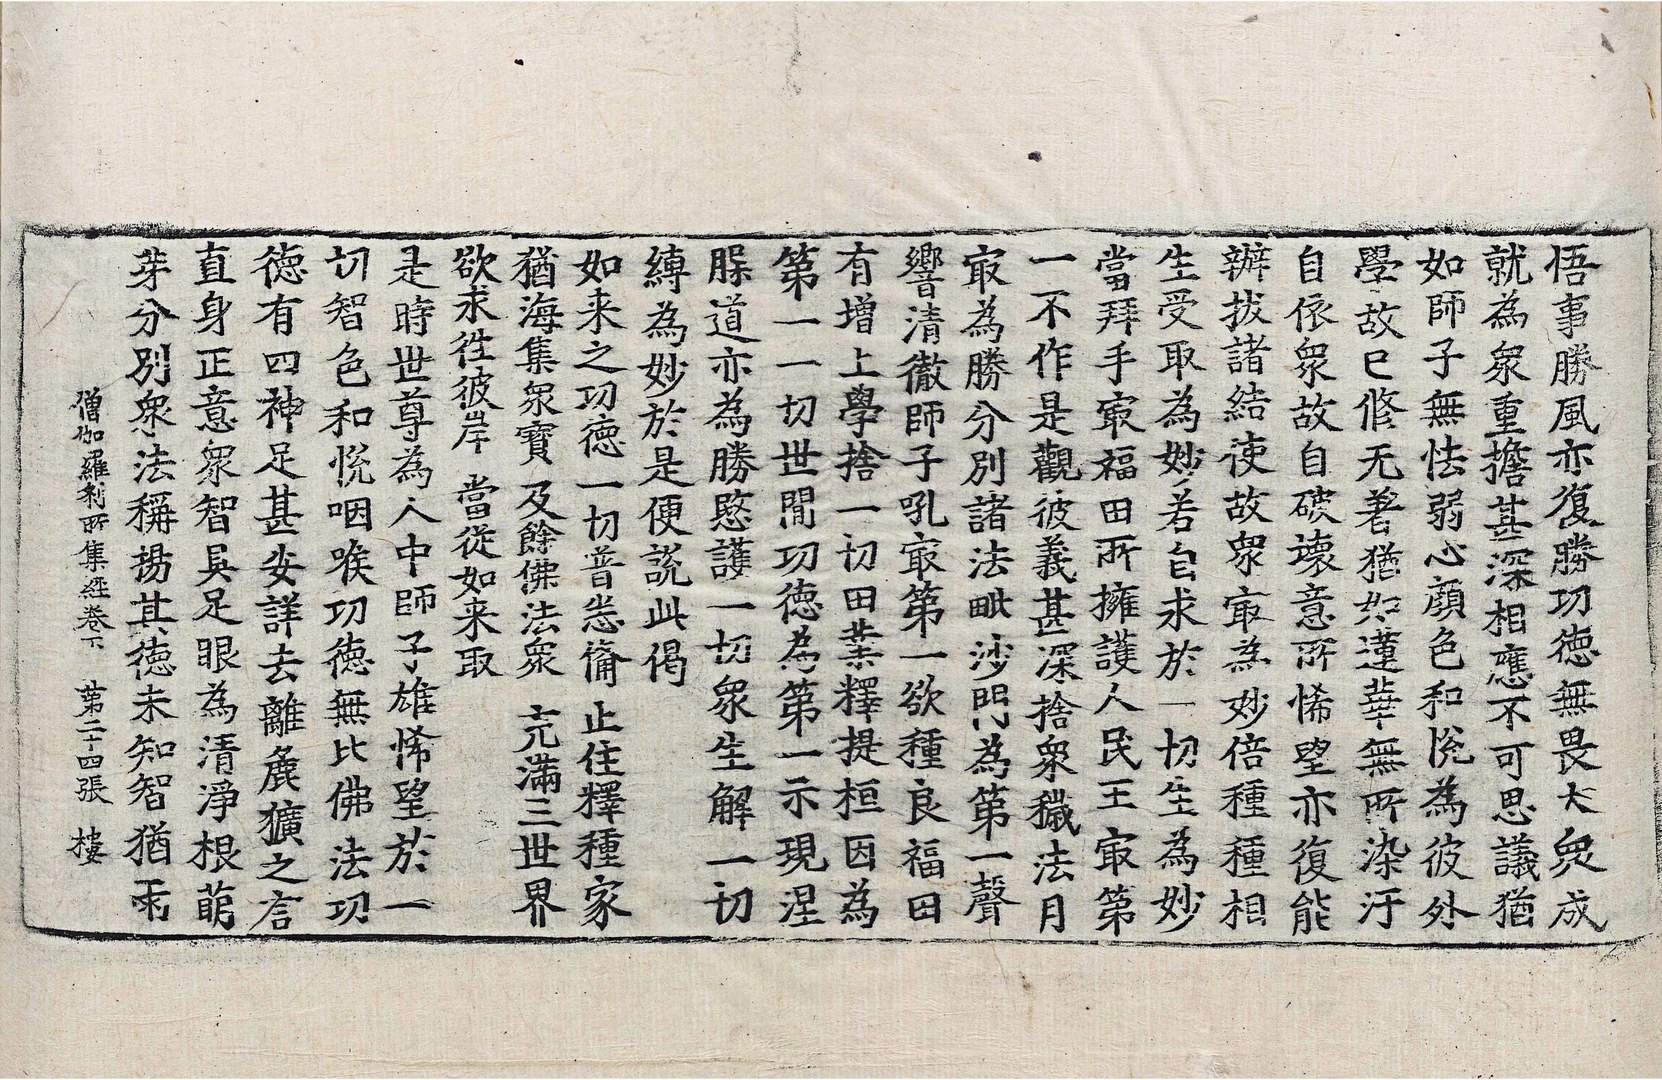 悟事勝風亦復勝功德無畏大衆成
就為衆重擔甚深相應不可思議猶
如師子無怯弱心顏色和悅為彼外
學故已修无著猶如蓮華無所染汙
自依衆故自破壞意所悕望亦復能
辦拔諸結使故衆㝡為妙倍種種相
生受取為妙若自求於一切生為妙
當拜手㝡福田所擁護人民王㝡第
一不作是觀彼義甚深捨衆穢法月
㝡為勝分別諸法毗沙門為第一聲
響清徹師子吼㝡第一欲種良福田
有增上學捨一切田業釋提桓因為
第一一切世閒功德為第一示現涅
脲道亦為勝愍護一切衆生解一切
縛為妙於是便說此偈
如来之功德　一切普悉備　止住釋種家
猶海集衆寶　及餘佛法衆　充滿三世界
欲求徃彼岸　當從如来取
是時世尊為人中師子雄悕望於一
切智色和悅咽喉功德無比佛法功
德有四神足甚安詳去離麁獷之言
直身正意衆智具足眼為清淨根萌
芽分別衆法稱揚其德未知智猶不
僧伽羅刹所集經卷下　第二十四張　樓